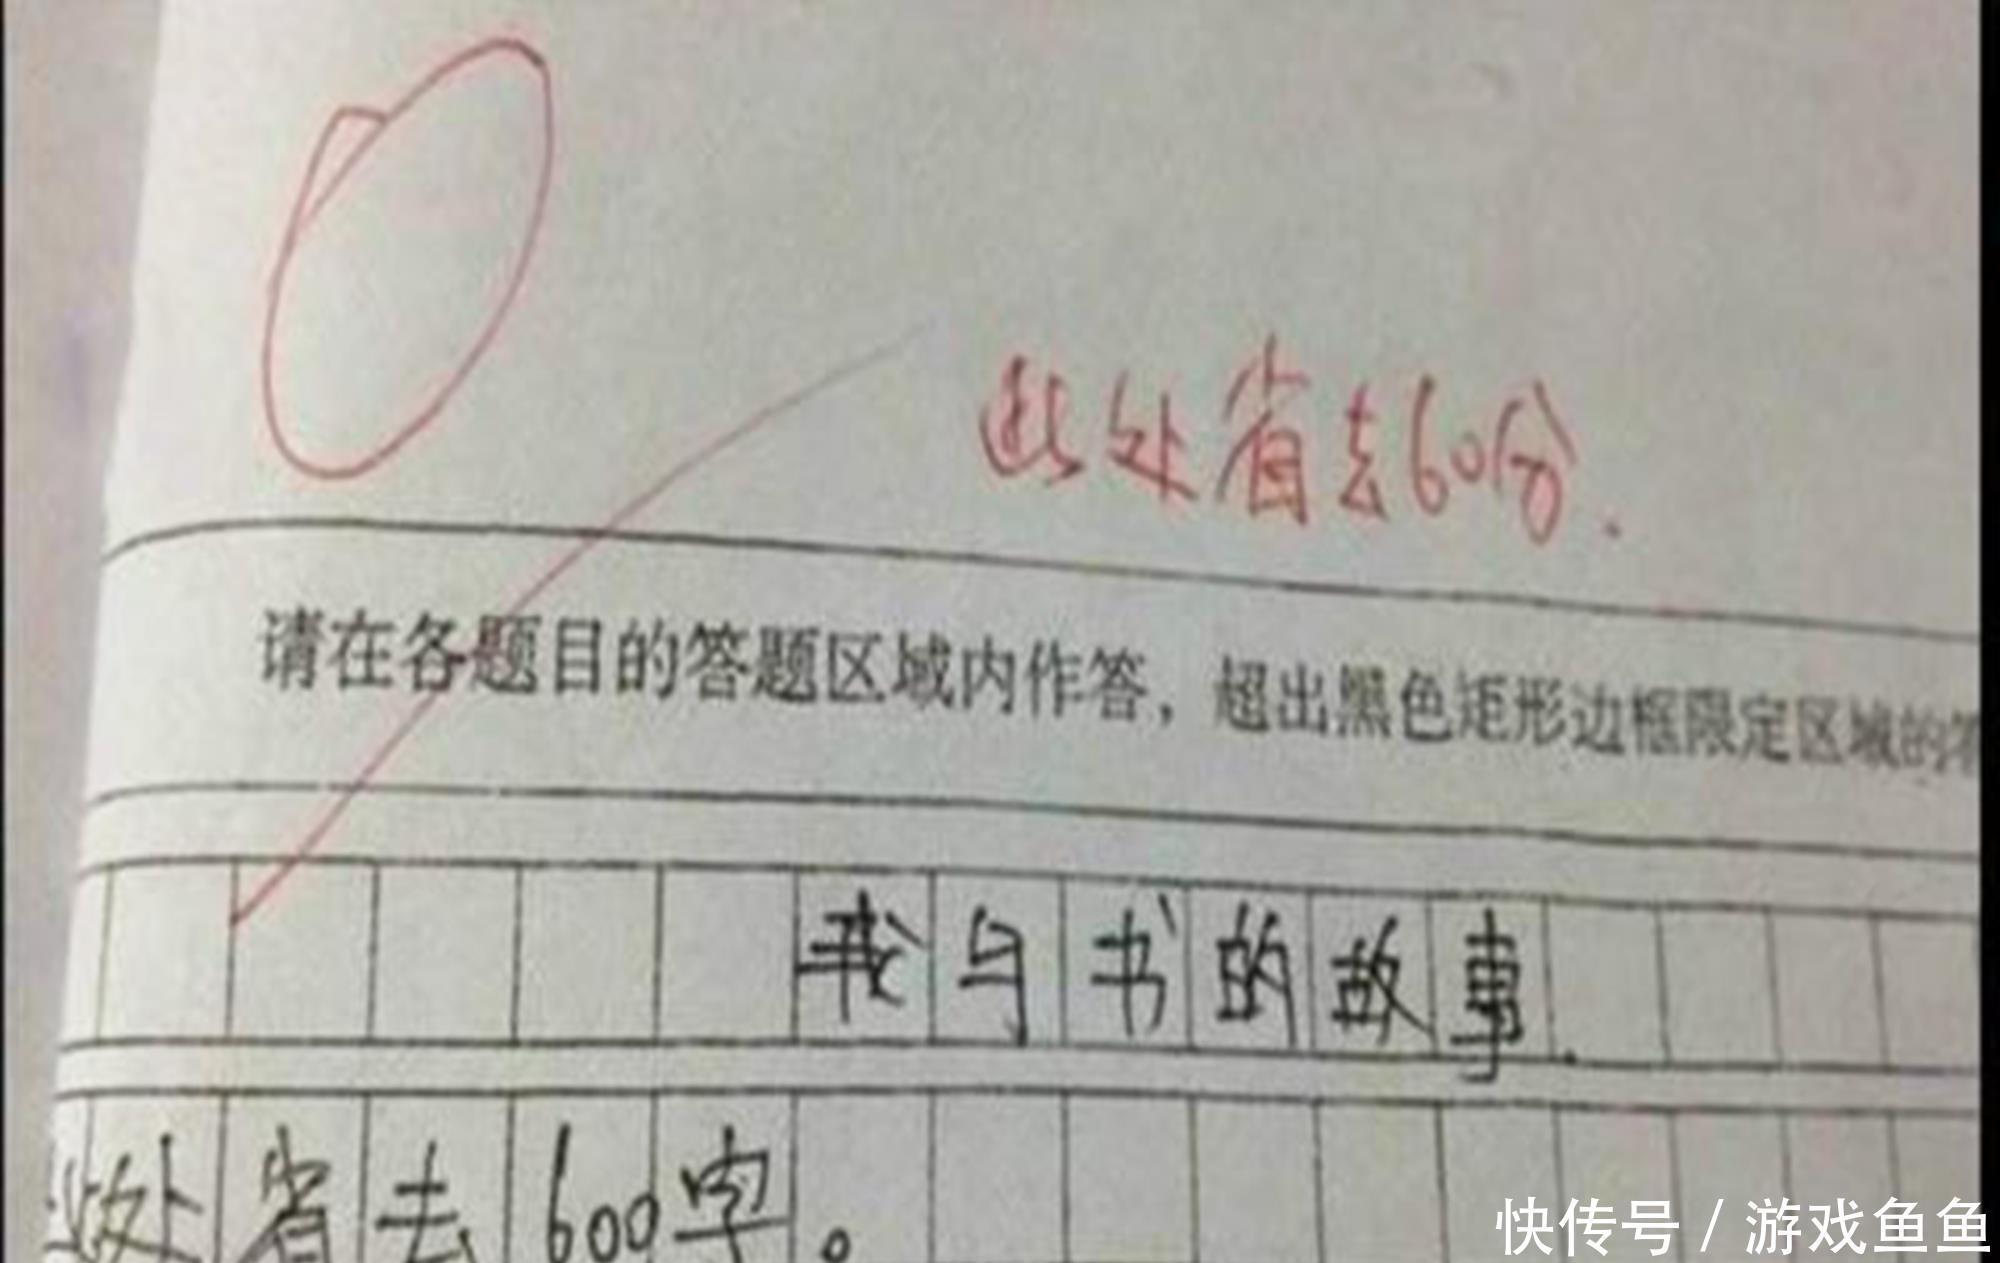 此处省去60分.
请在各题目的答题区域内作答，超出黑色矩形边框限定区域的答
我与书的故事.
此处省去600字。
快传号/游戏鱼鱼